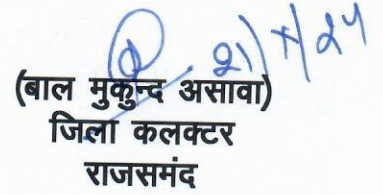 21/x/24
(बाल मुकुन्द असावा)
जिला कलक्टर
राजसमंद